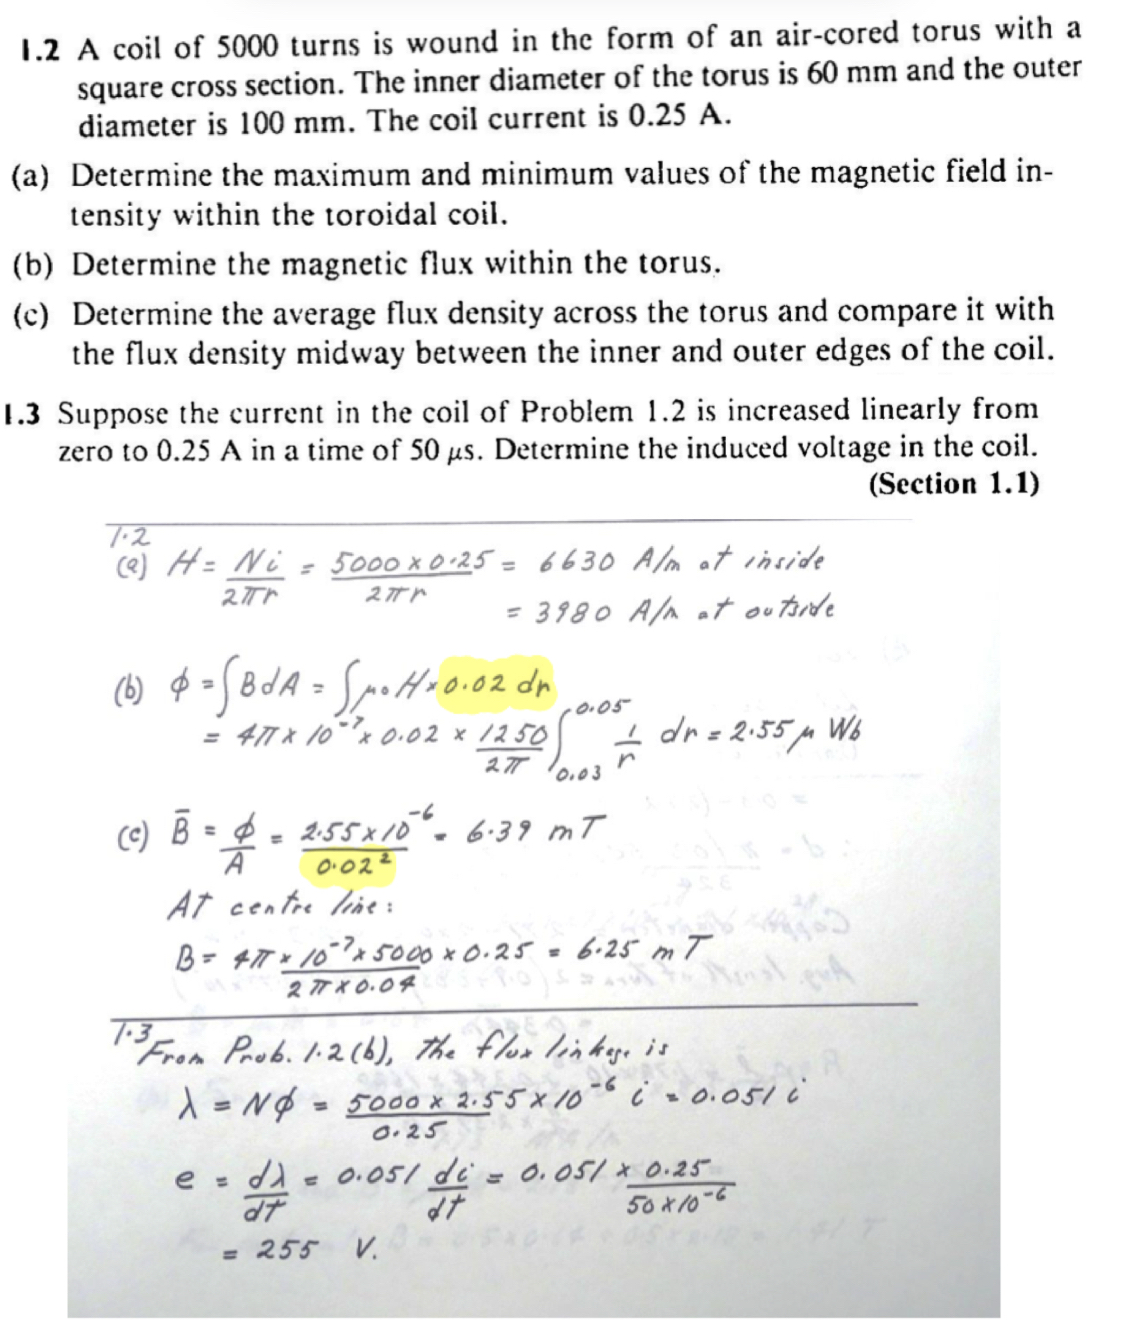 1.2 A coil of 5000 turns is wound in the form of an air-cored torus with a
square cross section. The inner diameter of the torus is 60 mm and the outer
diameter is 100 mm. The coil current is 0.25 A.
(a) Determine the maximum and minimum values of the magnetic field in-
tensity within the toroidal coil.
(b) Determine the magnetic flux within the torus.
(c) Determine the average flux density across the torus and compare it with
the flux density midway between the inner and outer edges of the coil.
1.3 Suppose the current in the coil of Problem 1.2 is increased linearly from
zero to 0.25 A in a time of 50 μs. Determine the induced voltage in the coil.
(Section 1.1)
1.2
(a) H = Ni / 2πr = 5000 × 0.25 / 2πr = 6630 A/m at inside
= 3980 A/m at outside
(b) ϕ = ∫ B dA = ∫ μ₀ H × 0.02 dr
= 4π × 10⁻⁷ × 0.02 × 1250 / 2π ∫ 0.03 0.05 1/r dr = 2.55 μ Wb
(c) B̄ = ϕ / A = 2.55 × 10⁻⁶ / 0.02² = 6.39 mT
At centre line:
B = 4π × 10⁻⁷ × 5000 × 0.25 / 2π × 0.04 = 6.25 mT
1.3
From Prob. 1.2(b), the flux linkage is
λ = Nϕ = 5000 × 2.55 × 10⁻⁶ / 0.25 i = 0.051 i
e = dλ/dt = 0.051 di/dt = 0.051 × 0.25 / 50 × 10⁻⁶
= 255 V.